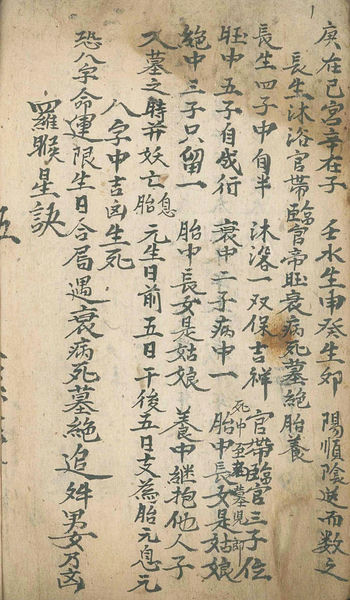 庚在巳宮辛在子 壬水生申癸生卯 陽順陰逆而數之
長生沐浴官帶臨官帝旺衰病死墓絕胎養
長生四子中自半 沐浴一双保吉祥 官帶臨官三子位
旺中五子自成行 衰中二子病中一 死中至老墓児郎 胎中長女是姑娘
絕中三子只留一 胎中長女是姑娘 養中継抱他人子
入墓之時并妖亡 胎息 元生日前五日午後五日支為胎元息元
八字中吉凶生死
恐八字命運限生日合局遇衰病死墓絕追 男女乃凶
羅睺星訣
五